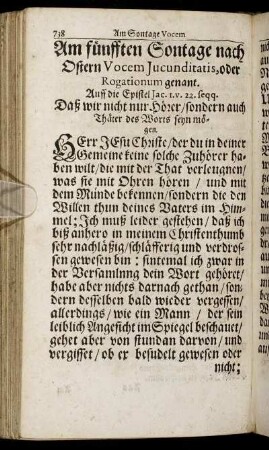 738 Am Sontage Vocem
Am fünfften Sontage nach
Ostern Vocem Jucunditatis, oder
Rogationum genant.
Auff die Epistel Jac. 1. v. 22. seqq.
Daß wir nicht nur Hörer/sondern auch
Thäter des Worts seyn mö-
gen.
HErr JEsu Christe/der du in deiner
Gemeine keine solche Zuhörer ha-
ben wilt/die mit der That verleugnen/
was sie mit Ohren hören / und mit
dem Münde bekennen/sondern die den
Willen thun deines Vaters im Him-
mel; Ich muß leider gestehen/ daß ich
biß anhero in meinem Christenthumb
sehr nachläßig/schläfferig und verdros-
sen gewesen bin : sintemal ich zwar in
der Versamlung dein Wort gehöret/
habe aber nichts darnach gethan/son-
dern desselben bald wieder vergessen/
allerdings/ wie ein Mann / der sein
leiblich Angesicht im Spiegel beschauet/
gehet aber von stundan darvon/ und
vergisset/ ob er besudelt gewesen oder
nicht;